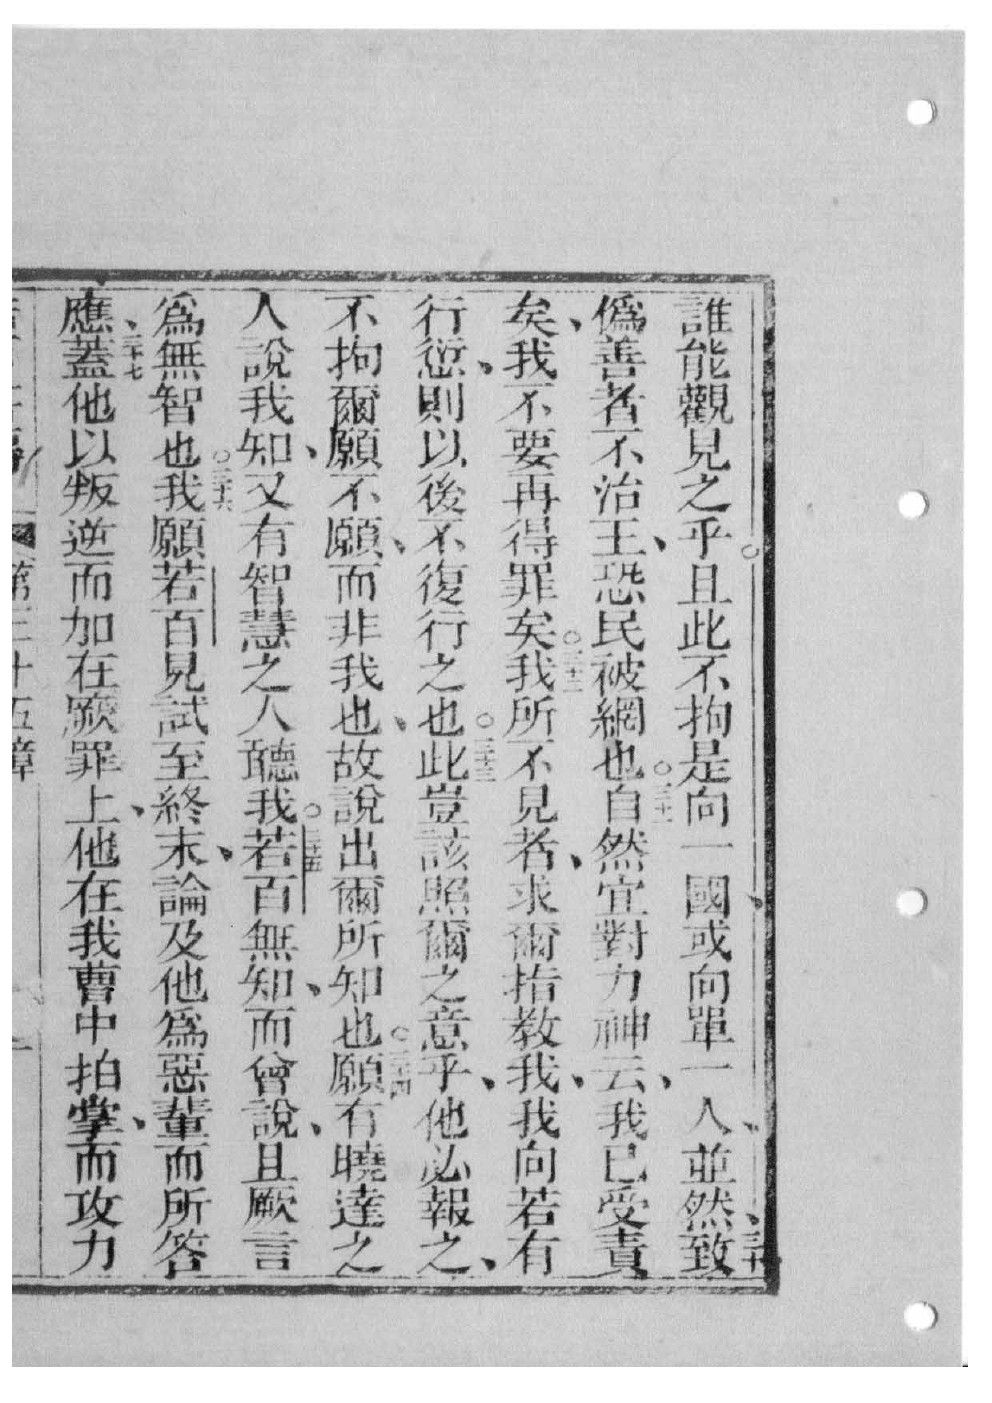 誰能觀見之乎。且此不拘是向一國、或向單一人、並然、三十致
僞善者不治王、恐民被網也。三十一自然宜對力神云、我已受責
矣、我不要再得罪矣。三十二我所不見者、求爾指教我、我向若有
行愆、則以後不復行之也。三十三此豈該照爾之意乎、他必報之、
不拘爾願不願、而非我也、故說出爾所知也。三十四願有曉達之
人說我知、又有智慧之人聽我。三十五若百無知、而曾說、且厥言
爲無智也。三十六我願若百見試至終末、論及他爲惡輩而所答
應、三十七蓋他以叛逆而加在厥罪上、他在我曹中拍掌、而攻力
第三十五章